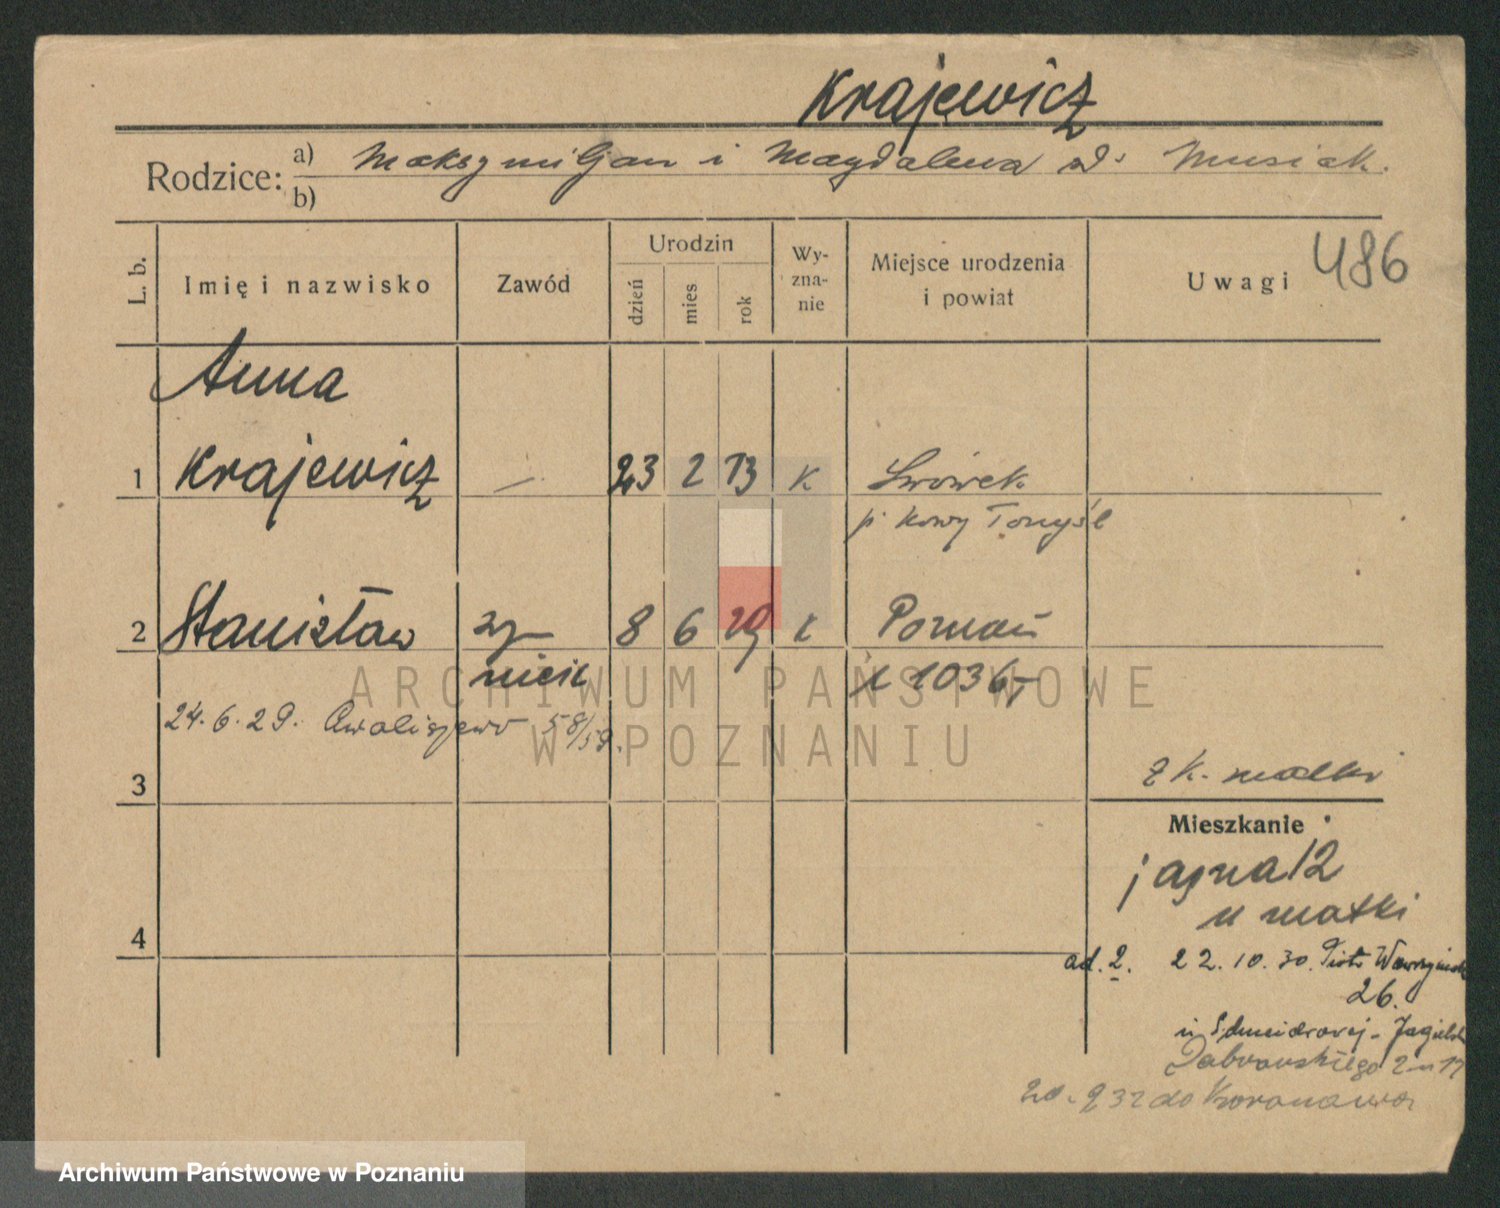 Krajewicz
Rodzice: a) Maksymiljan i Magdalena d. Musiak.
b)
L. b. Imię i nazwisko Zawód Urodzin dzień mies rok Wy-zna-nie Miejsce urodzenia i powiat Uwagi 486
Anna
1 Krajewicz — 23 2 13 k Lwówek
p. Nowy Tomyśl
2 Stanisław 8 6 29 k Poznań
1036
24.6.29. Chwaliszewo 58/59.
3 z k. matki
Mieszkanie
jasna 12
u matki
4
ad. 2. 22.10.30. Piotr Wawrzyniak
26.
Dąbrowskiego
do Koronowa
ARCHIWUM PAŃSTWOWE
W POZNANIU
Archiwum Państwowe w Poznaniu